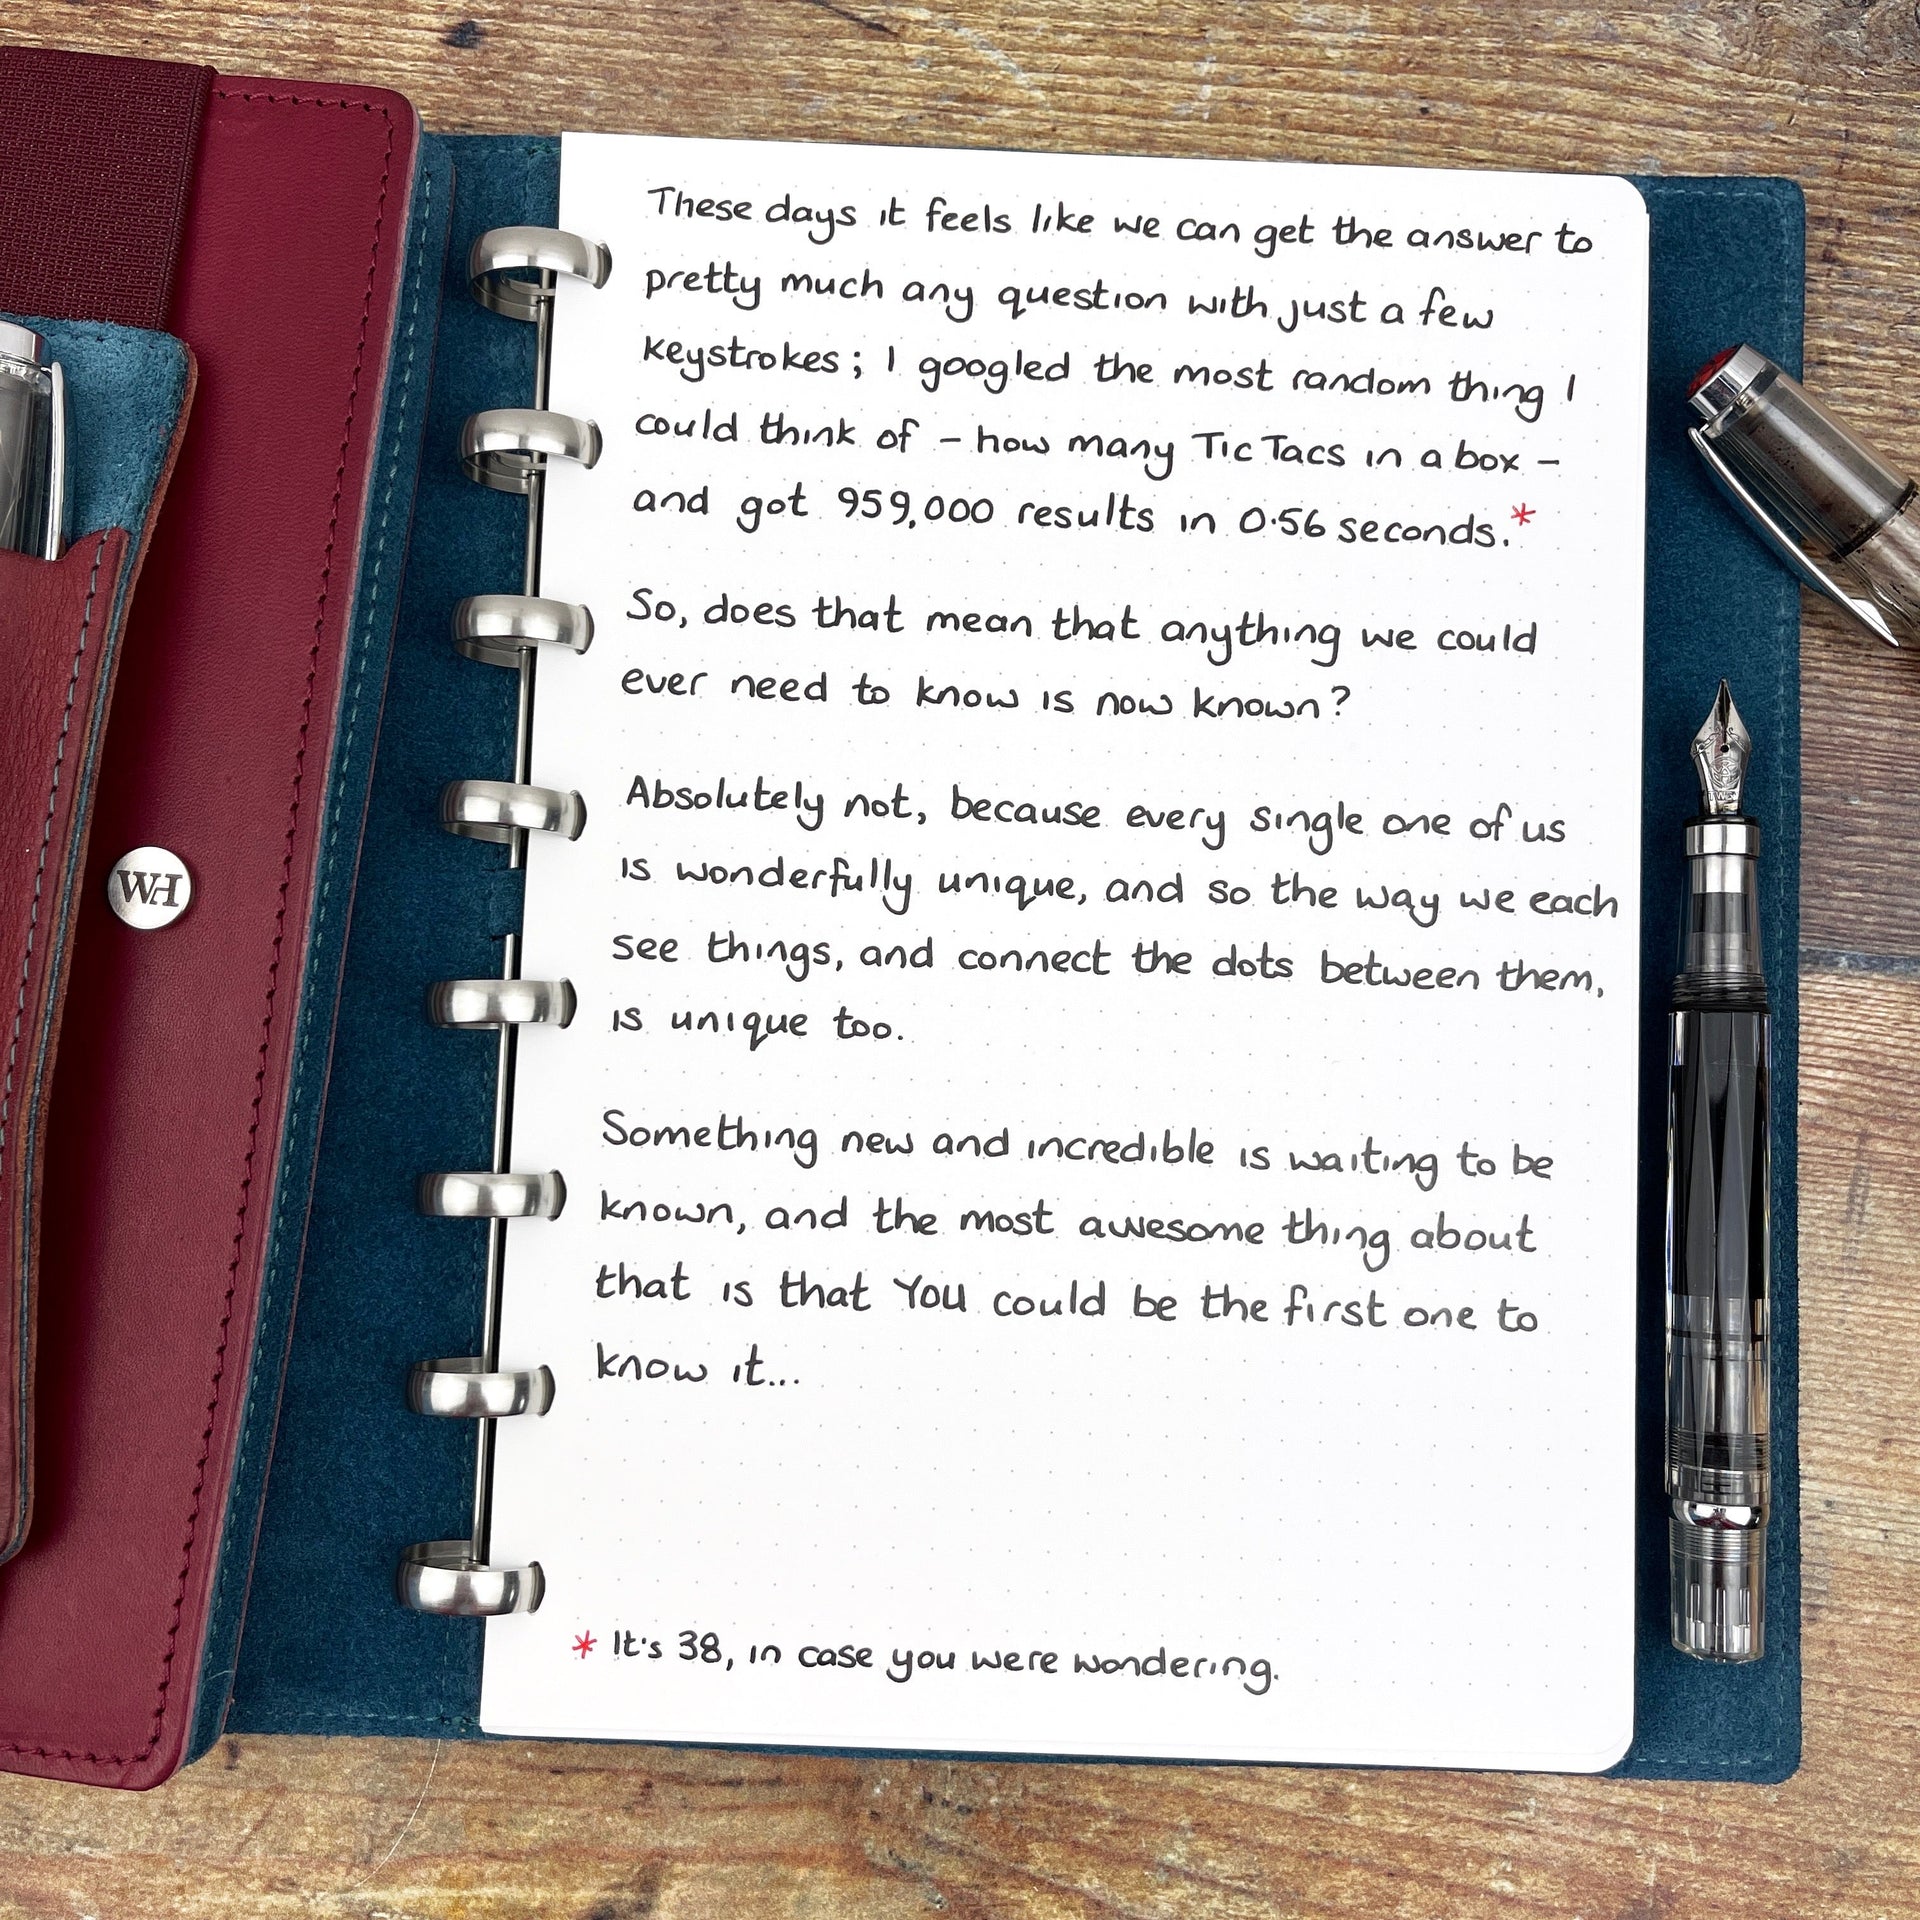 These days it feels like we can get the answer to
pretty much any question with just a few
keystrokes; I googled the most random thing I
could think of - how many Tic Tacs in a box -
and got 959,000 results in 0·56 seconds.*
So, does that mean that anything we could
ever need to know is now known?
Absolutely not, because every single one of us
is wonderfully unique, and so the way we each
see things, and connect the dots between them,
is unique too.
Something new and incredible is waiting to be
known, and the most awesome thing about
that is that YOU could be the first one to
know it...
* It's 38, in case you were wondering.
WH